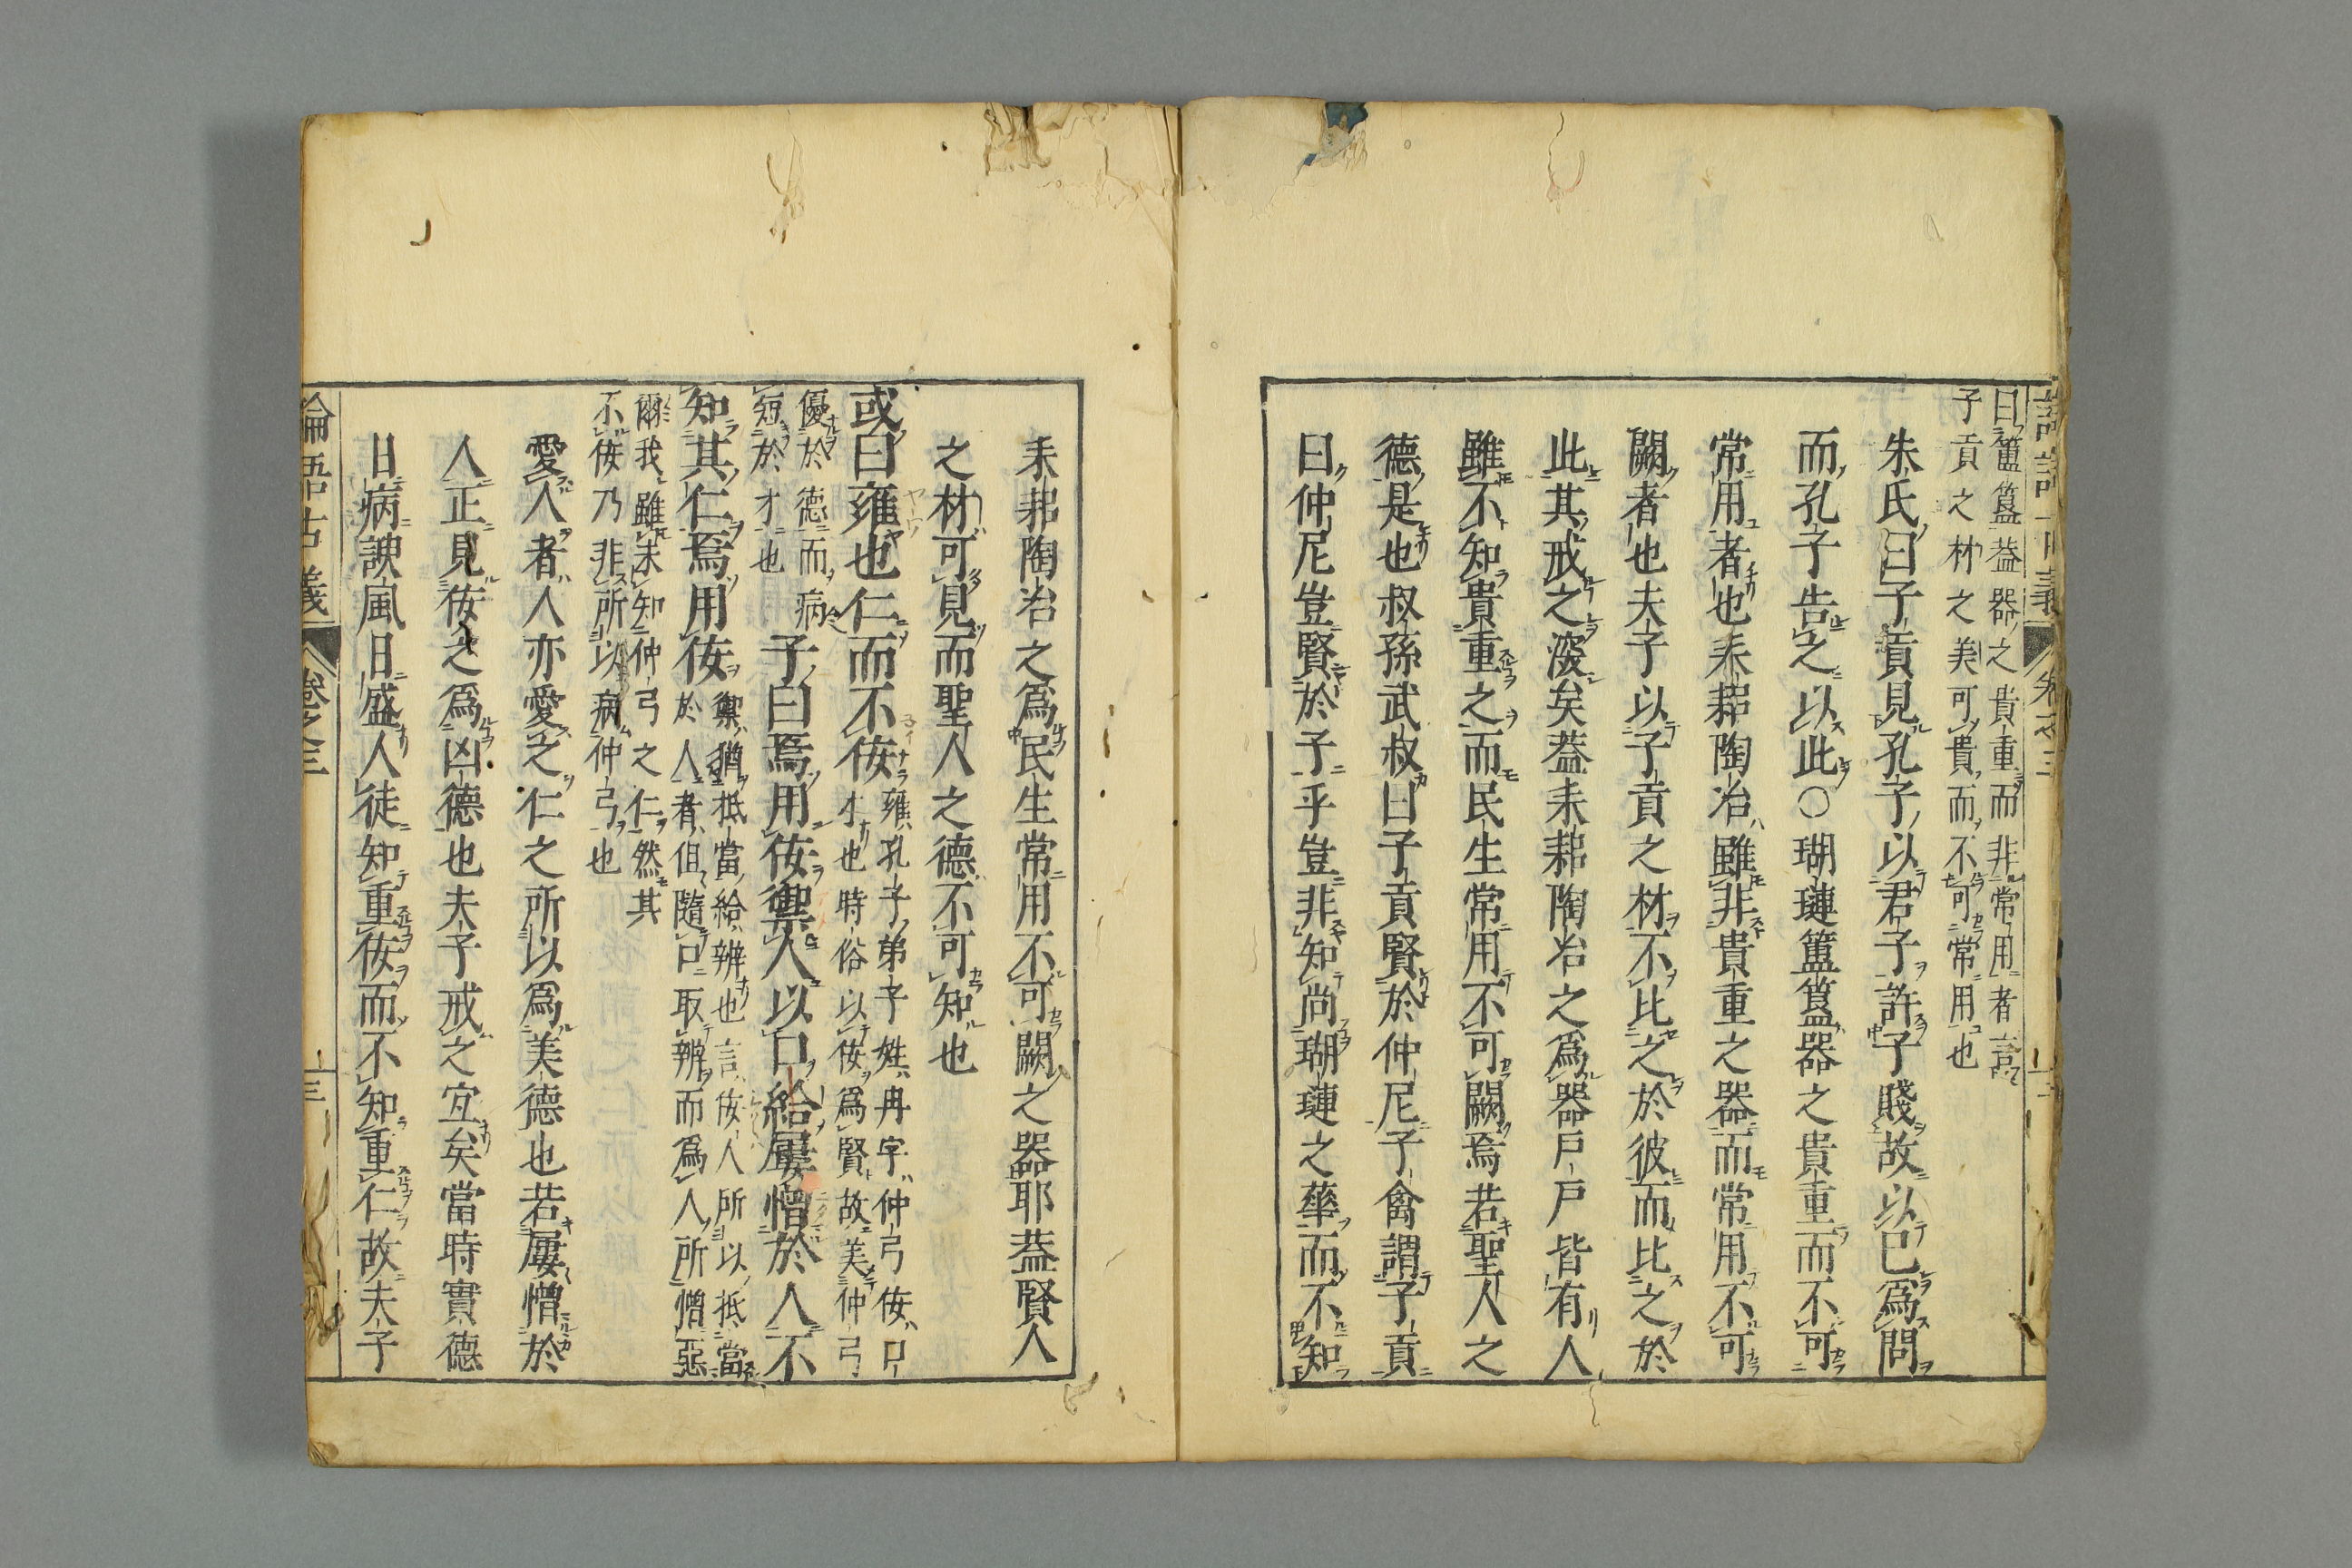 曰簠簋蓋器之貴重而非常用者言
子貢之材之美可貴而不可常用也
朱氏曰子貢見孔子以君子許子賤故以己爲問
而孔子告之以此〇瑚璉簠簋器之貴重而不可
常用者也耒耜陶冶雖非貴重之器而常用不可
闕者也夫子以子貢之材不比之於彼而比之於
此其戒之深矣蓋耒耜陶冶之爲器戶戶皆有人
雖不知貴重之而民生常用不可闕焉若聖人之
德是也叔孫武叔曰子貢賢於仲尼子禽謂子貢
曰仲尼豈賢於子乎豈非知尚瑚璉之華而不知
耒耜陶冶之爲民生常用不可闕之器耶蓋賢人
之材可見而聖人之德不可知也
或曰雍也仁而不佞
雍孔子弟子姓冉字仲弓佞口
才也時俗以佞爲賢故美仲弓
優於德而病
短於才也
子曰焉用佞禦人以口給屢憎於人不
知其仁焉用佞
禦猶抵當給辨也言佞人所以抵當
於人者但隨口取辨而爲人所憎惡
爾我雖未知仲弓之仁然其
不佞乃非所以病仲弓也
愛人者人亦愛之仁之所以爲美德也若屢憎於
人正見佞之爲凶德也夫子戒之宜矣當時實德
日病諛風日盛人徒知重佞而不知重仁故夫子
論語古義 卷之三